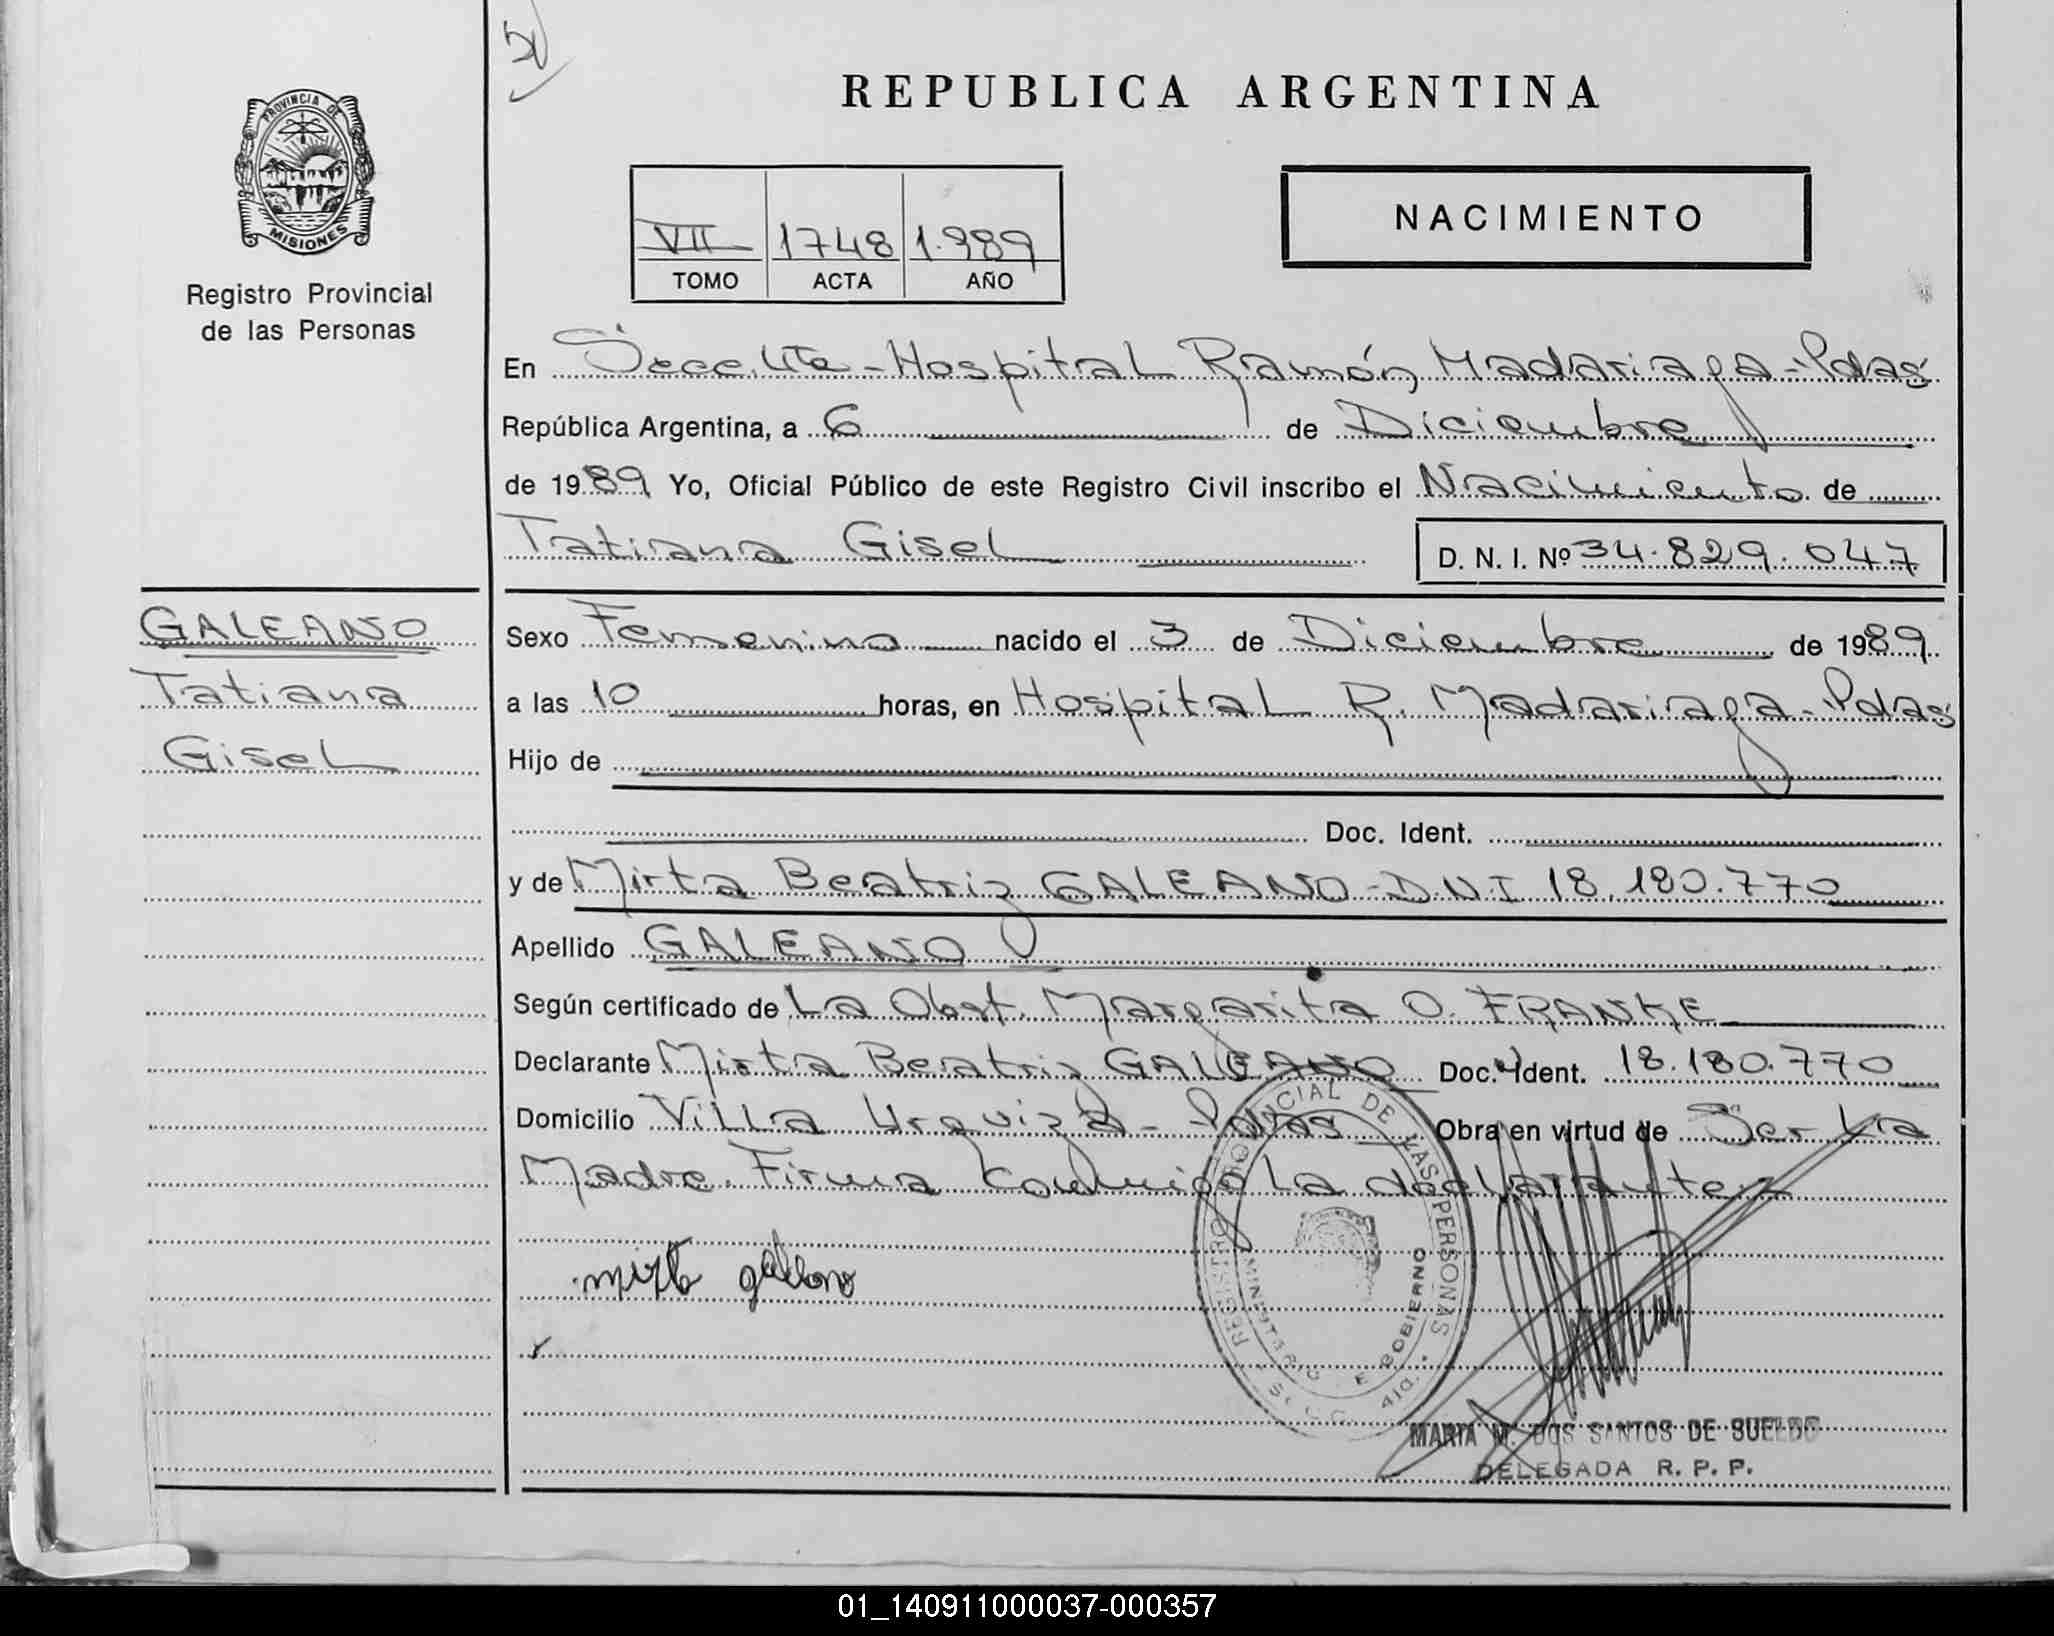 REPUBLICA ARGENTINA
PROVINCIA DE MISIONES
Registro Provincial
de las Personas
VII 1748 1.989
TOMO ACTA AÑO
NACIMIENTO
En Secc. Hospital Ramón Madariaga - Pdas
República Argentina, a 6 de Diciembre
de 1989 Yo, Oficial Público de este Registro Civil inscribo el Nacimiento de
Tatiana Gisel D. N. I. Nº 34.829.047
GALEANO
Tatiana
Gisel
Sexo Femenino nacido el 3 de Diciembre de 1989
a las 10 horas, en Hospital R. Madariaga - Pdas
Hijo de
Doc. Ident.
y de Mirta Beatriz GALEANO - D.N.I 18.180.770
Apellido GALEANO
Según certificado de La Obst. Margarita O. FRANKE
Declarante Mirta Beatriz GALEANO Doc. Ident. 18.180.770
Domicilio Villa Urquiza - Pdas Obra en virtud de Ser La
Madre. Firma Conmigo La declarante
mirta galeano
REGISTRO PROVINCIAL DE LAS PERSONAS
MINISTERIO E GOBIERNO
MARIA M. DOS SANTOS DE SUELDO
DELEGADA R. P. P.
01_140911000037-000357